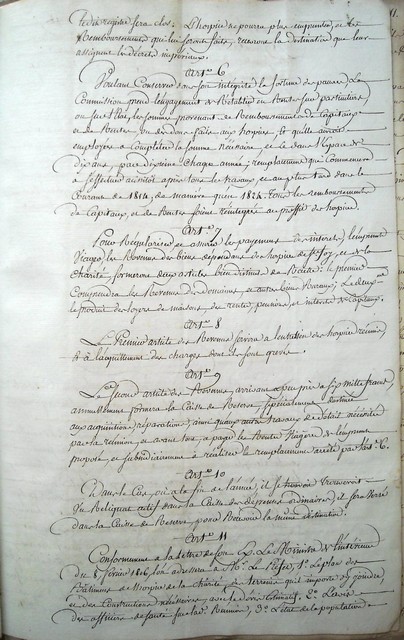 Ledit registre sera clos: L'hospice ne pourra plus emprunter, et les
Remboursements qui lui seront faits, recevront la destination que leur
assignent les décrets impériaux.
Art.e 6
Voulant Conserver dans son intégrité la fortune des pauvres, La
Commission prend l'engagement de Rétablir en Rentes sur particuliers,
ou sur l'Etat, les sommes provenant de Remboursements de Capitaux
et de Rentes, ou des dons faits aux hospices, et qu'elle auroit
employés à Compléter la somme nécessaire, et ce dans l'espace de
dix ans, par dixième Chaque année; remplacement qui commencera
à s'effectuer aussitôt après tous les travaux, et au plus tard dans le
Courant de 1814, de manière qu'en 1824 tous les remboursements
de Capitaux, et de Rentes soient réintégrés au proffit des hospices.
Art.e 7
Pour Régulariser et assurer les payements des interets, l'emprunt
Viager, les Revenus des biens dependans des hospices de Ste foy, et de la
Charité formeront deux articles bien distincts de Recette: le premier
Comprendra les Revenus des domaines et autres biens Ruraux; Le deuxième
le produit des loyers de maisons, des rentes, pensions, et interets de Capitaux.
Art.e 8
Le Premier article des Revenus servira à l'entretien des hospices réunis,
et à l'acquittement des charges dont ils sont grevés.
Art.e 9
Le Second article des Revenus, arrivant à peu près à Six mille francs
annuellement formera la Caisse de Réserve spécialement destinée
aux acquisitions, réparations, ainsi qu'aux autres travaux de détail nécessités
par la réunion, et avant tout, à payer les Rentes Viagères de l'emprunt
proposé, et subsidiairement à réaliser le remplacement arrêté par l'art. 6.
Art.e 10
Dans le Cas, où à la fin de l'année, il se trouveroit
Un Reliquat actif dans la Caisse des dépenses ordinaires, il sera versé
dans la Caisse de Réserve, pour Recevoir la même destination.
Art.e 11
Conformément à la lettre de Son Ex. Le Ministre de l'intérieur
du 8 février, l'on adressera à Mr. Le Préfet, 1.o Le plan des
Bâtiments de l'hospice de la Charité, du terrein qu'il importe d'y joindre,
et des Constructions nécessaires, avec le devis estimatif. 2.o L'avis
des officiers de santé sur la Réunion, 3.o L'état de la population